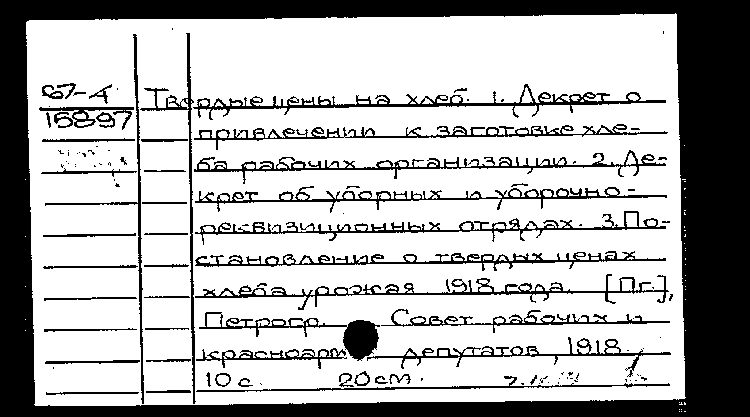 67-4 Твердые цены на хлеб. 1. Декрет о
15897 привлечении к заготовке хле-
ба рабочих организации. 2. Де-
крет об уборных и уборочно-
реквизиционных отрядах. 3. По-
становление о твердых ценах
хлеба урожая 1918 года. [Пг.],
Петрогр. Совет рабочих и
красноарм депутатов, 1918.
10 с. 20 см.